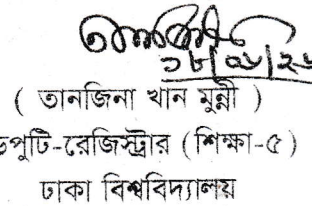 ১৮/০৬/২৬
( তানজিনা খান মুন্নী )
ডেপুটি-রেজিস্ট্রার (শিক্ষা-৫)
ঢাকা বিশ্ববিদ্যালয়